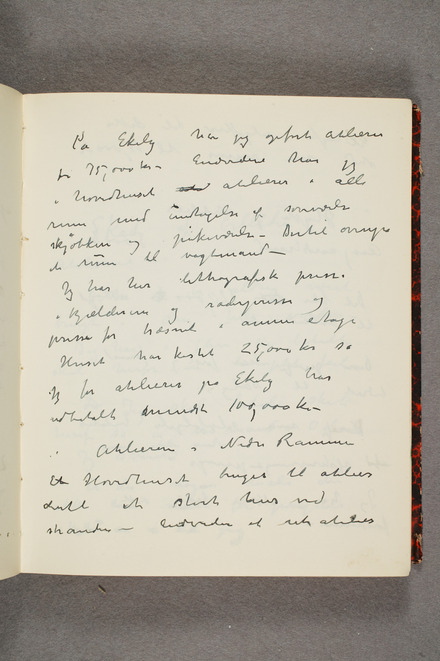 På Ekely har jeg opført atelierer
for 75,000 kr – Endvidere har jeg
i Hovedhuset atelierer i alle
rum med undtagelse af soveværelse
skjøkken og pikeværelse – Dertil
et rum til vagtmand –
Jeg har her lithografisk presse
i Kjælderen og raderpresse og
presse for træsnit i annen etage
Huset har kostet 25,000 kr så
jeg for atelierer på Ekely har
udbetalt mindst 100,000 kr –
Atelierer i Nedre Ramme
Hovedhuset bruget til atelier
dertil et stort hus ved
stranden – Endvidere et